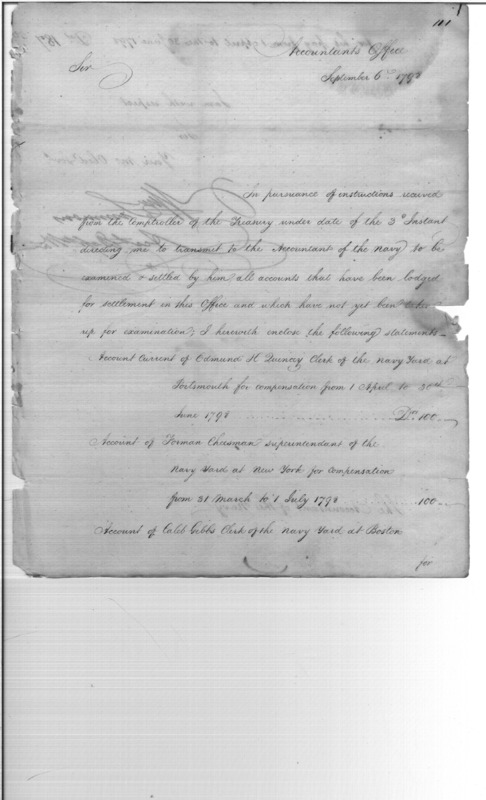 Accountants Office
September 6th 1798
Sir
In pursuance of instructions received
from the Comptroller of the Treasury under date of the 3d Instant
directing me to transmit to the Accountant of the Navy to be
examined & settled by him all accounts that have been lodged
for settlement in this Office and which have not yet been taken
up for examination; I herewith enclose the following statements—
Account Current of Edmund H Quincy Clerk of the Navy Yard at
Portsmouth for compensation from 1 April to 30th
June 1798 Drs 100—
Account of Forman Cheesman superintendant of the
Navy Yard at New York for compensation
from 31 March to 1 July 1798 100—
Account of Caleb Gibbs Clerk of the Navy Yard at Boston
for